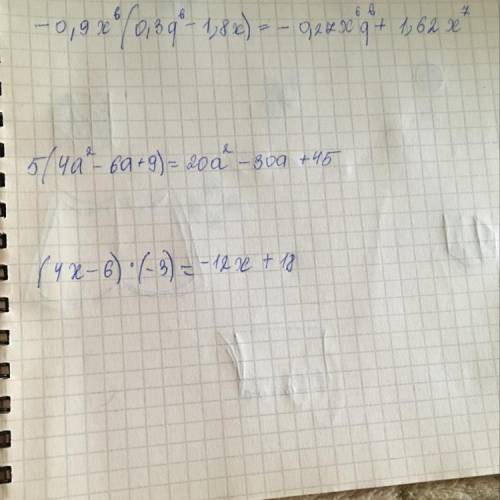 -0,9x⁶(0,3q⁶-1,8x)=-0,27x⁶q⁶+1,62x⁷
5(4a²-6a+9)=20a²-30a+45
(4x-6)·(-3)=-12x+18